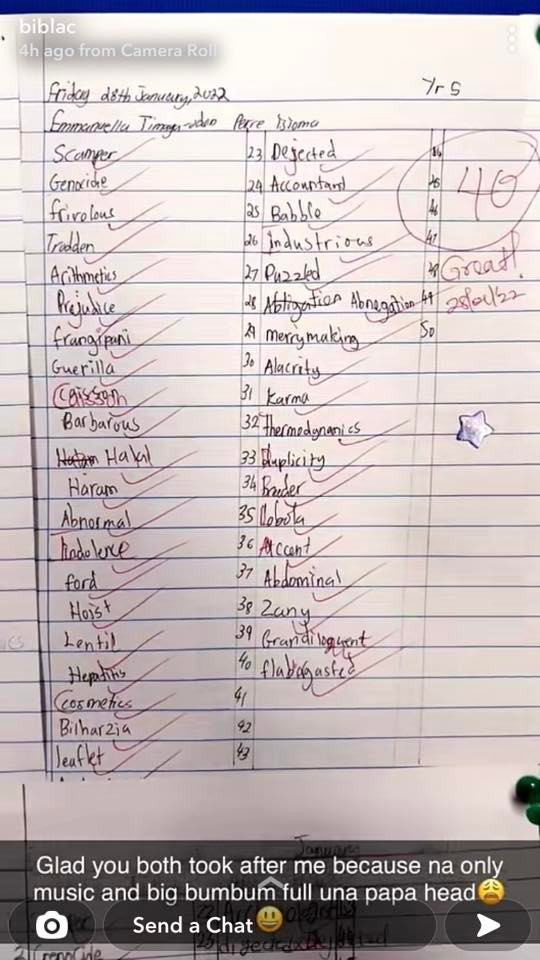 biblac
4h ago from Camera Roll
Friday 28th January, 2022
Yr 5
Emmanuella
Scamper
Genocide
frivolous
Trodden
Arithmetics
Prejudice
frangipani
Guerilla
Caisson
Barbarous
Halal
Haram
Abnormal
Indolence
ford
Hoist
Lentil
Hepatitis
Cosmetics
Bilharzia
leaflet
23 Dejected
24 Accountant
25 Babble
26 Industrious
27 Puzzled
28 Abtigation Abnegation
29 merrymaking
30 Alacrity
31 Karma
32 thermodynamics
33 Duplicity
34
35
36 Accent
37 Abdominal
38 Zany
39 Grandiloquent
40 flabagasted
41
42
43
44
45
46
47
48
49
50
40
Great!
Glad you both took after me because na only
music and big bumbum full una papa head😩
Send a Chat